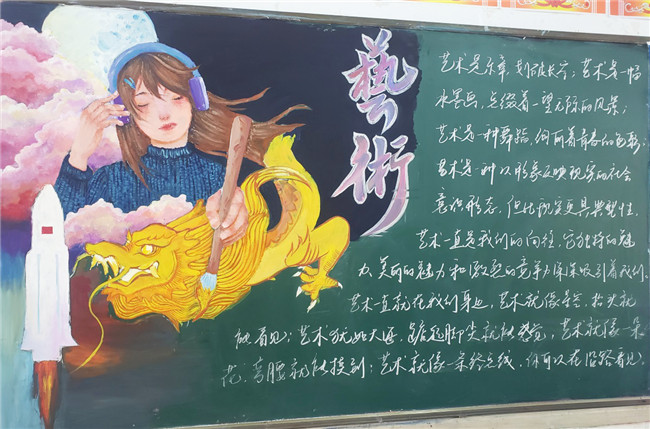 藝術
艺术是乐章,划破长空;艺术是一幅
水墨画,点缀着一望无际的风景;
艺术是一种舞蹈,绚丽着青春的色彩。
艺术是一种以形象反映现实的社会
意识形态,但比现实更具典型性。
艺术一直是我们的向往,它独特的魅
力、美丽的魅力和激烈的竞争力深深吸引着我们。
艺术一直就在我们身边,艺术就像星空,抬头就
能看见;艺术犹如大海,踮起脚尖就能感觉,艺术就像一朵
花,弯腰就能摸到;艺术就像一条终点线,你可以在沿路看见。